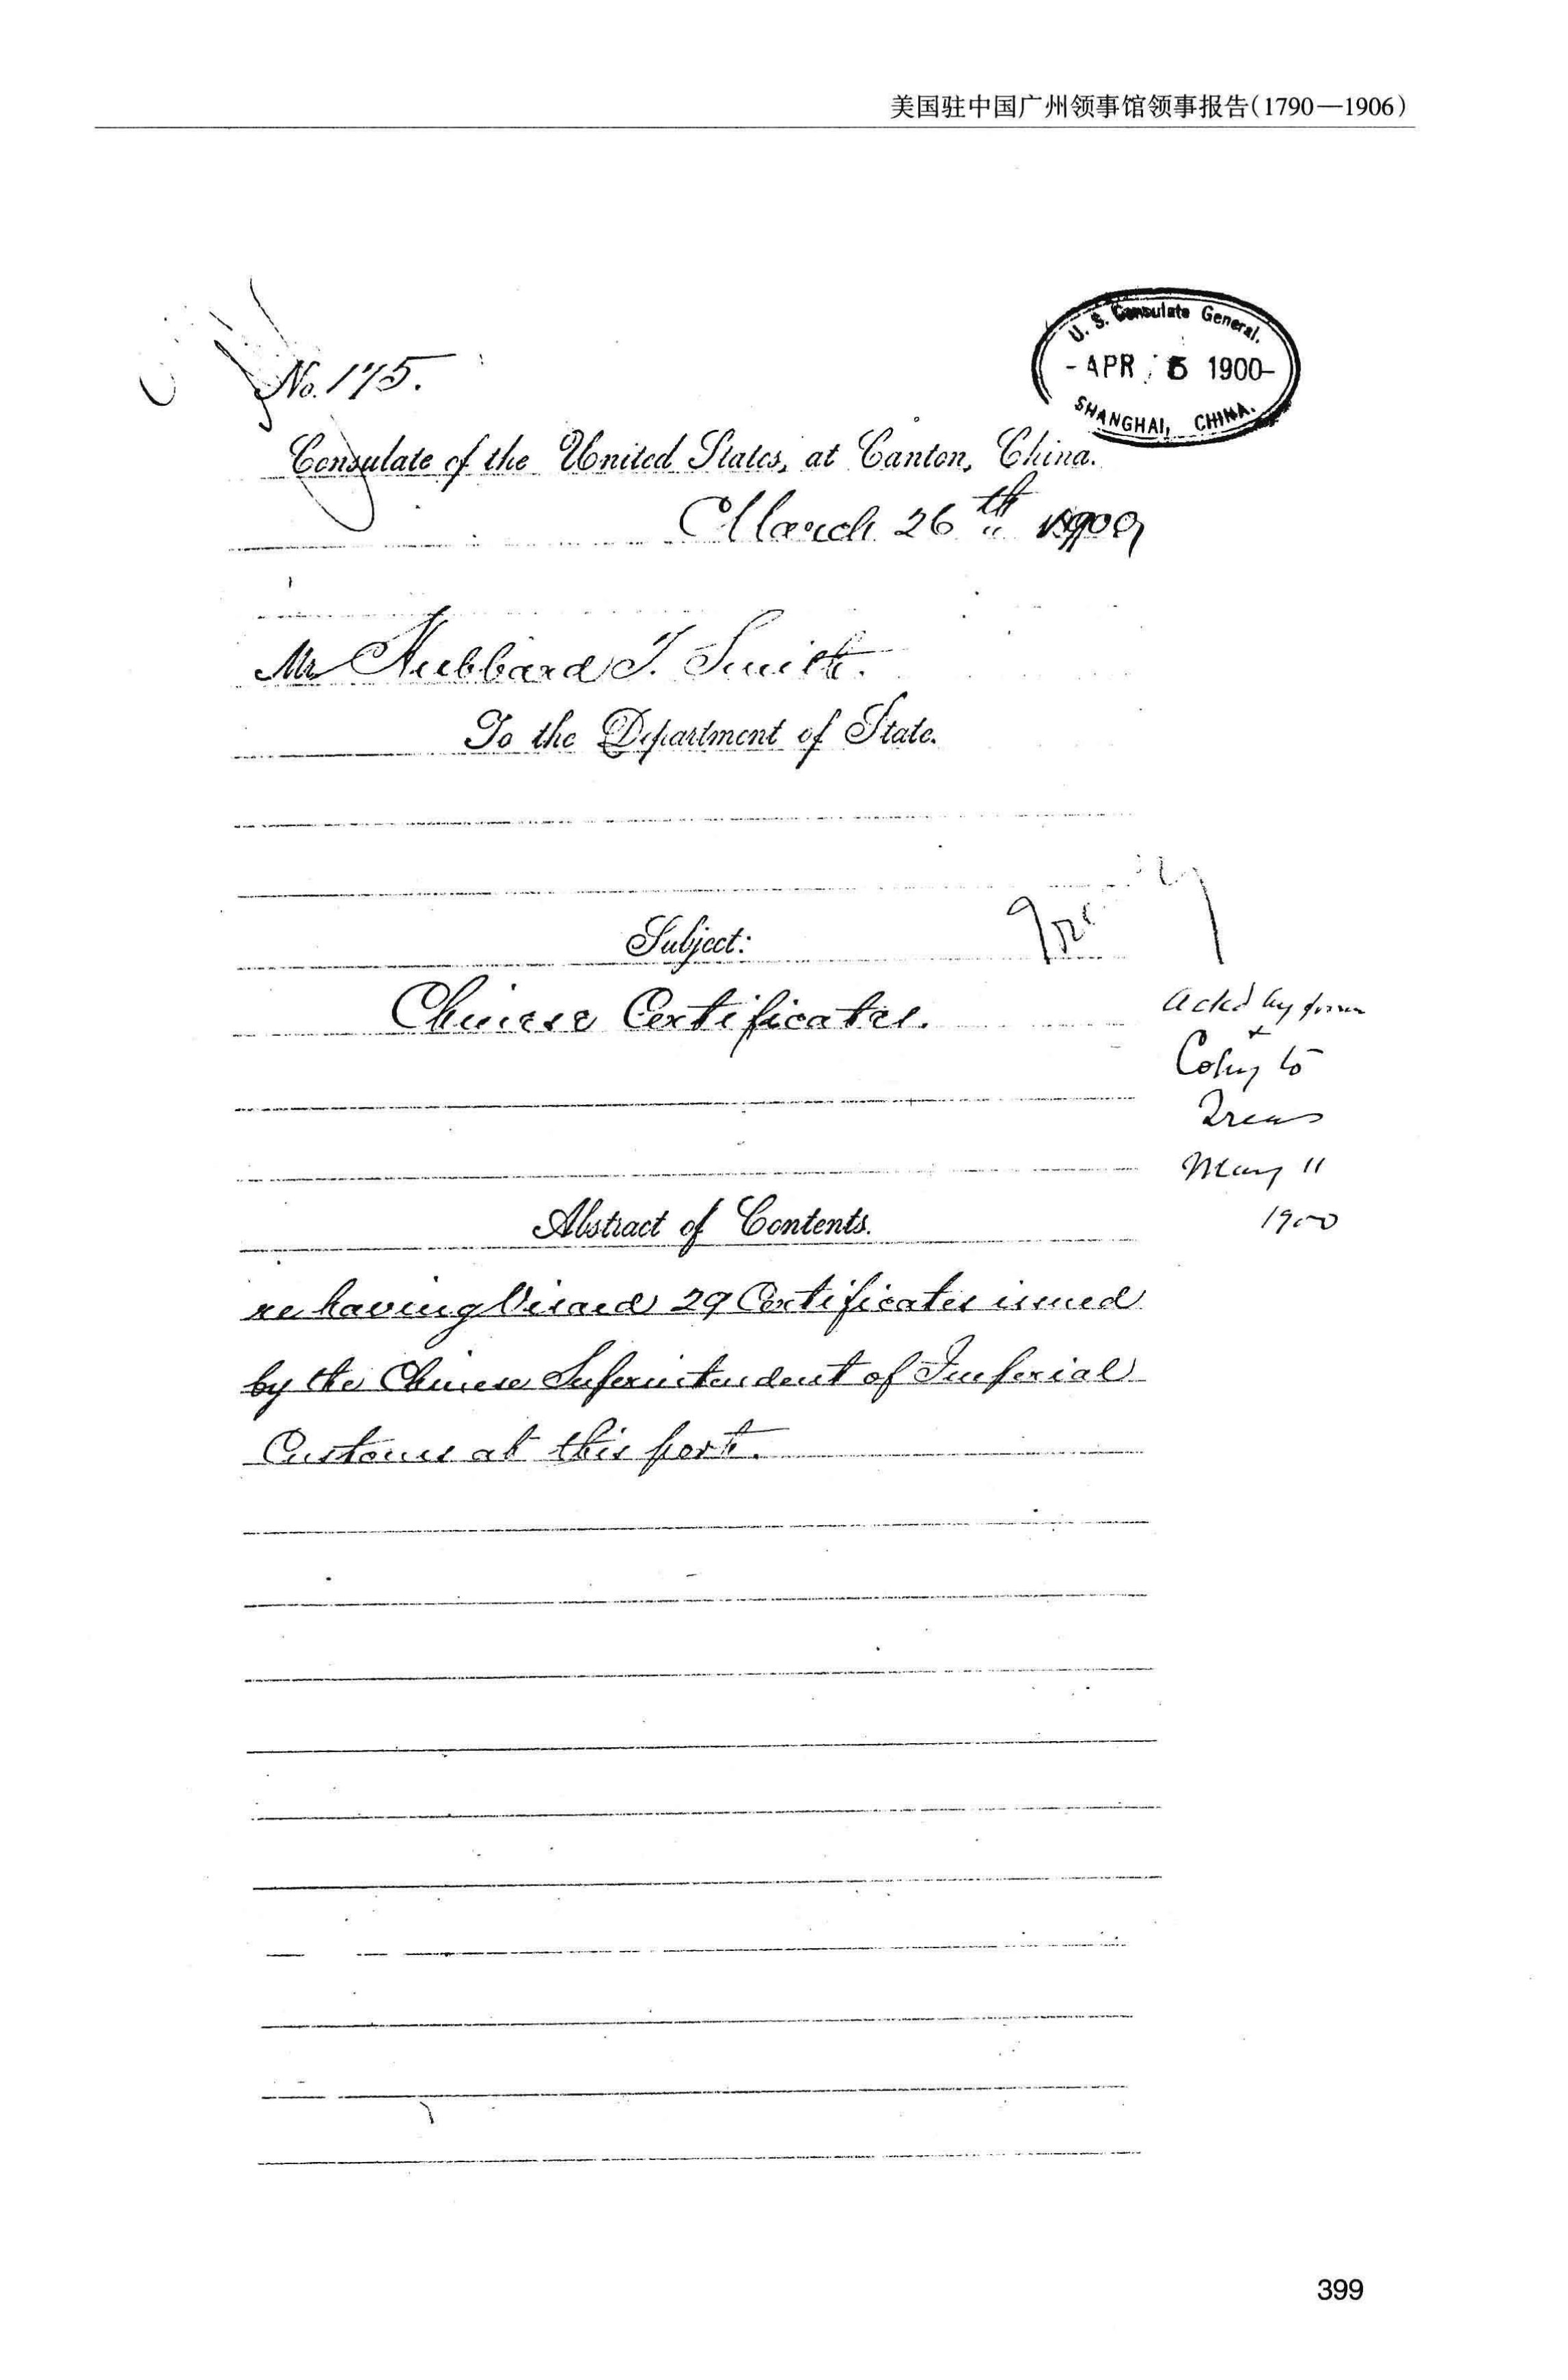 美国驻中国广州领事馆领事报告(1790—1906)
U. S. Consulate General.
-APR 5 1900-
SHANGHAI, CHINA.
No. 175.
Consulate of the United States, at Canton, China.
March 26th 1900
Mr Hubbard T. Smith.
To the Department of State.
Subject:
Chinese Certificates.
Ackd by form
+
Copy to
Treas
May 11
1900
Abstract of Contents.
re having Visaed 29 Certificates issued
by the Chinese Superintendent of Imperial
Customs at this port.
399